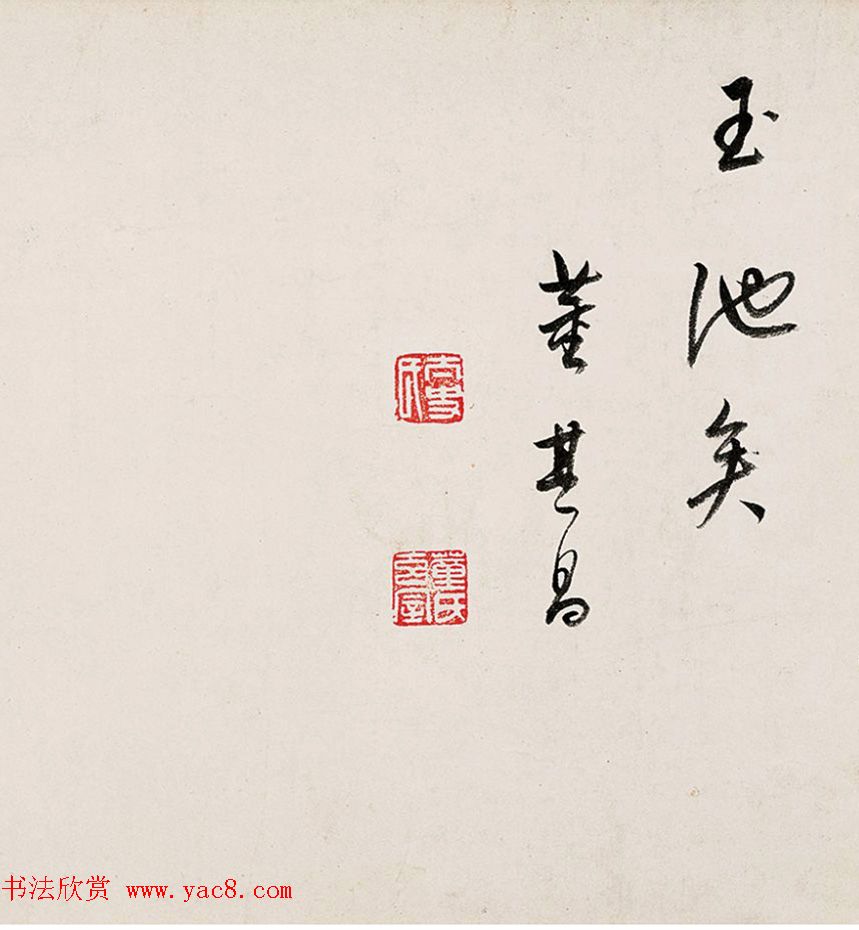 玉池矣
董其昌
太史氏
董氏玄宰
书法欣赏 www.yac8.com